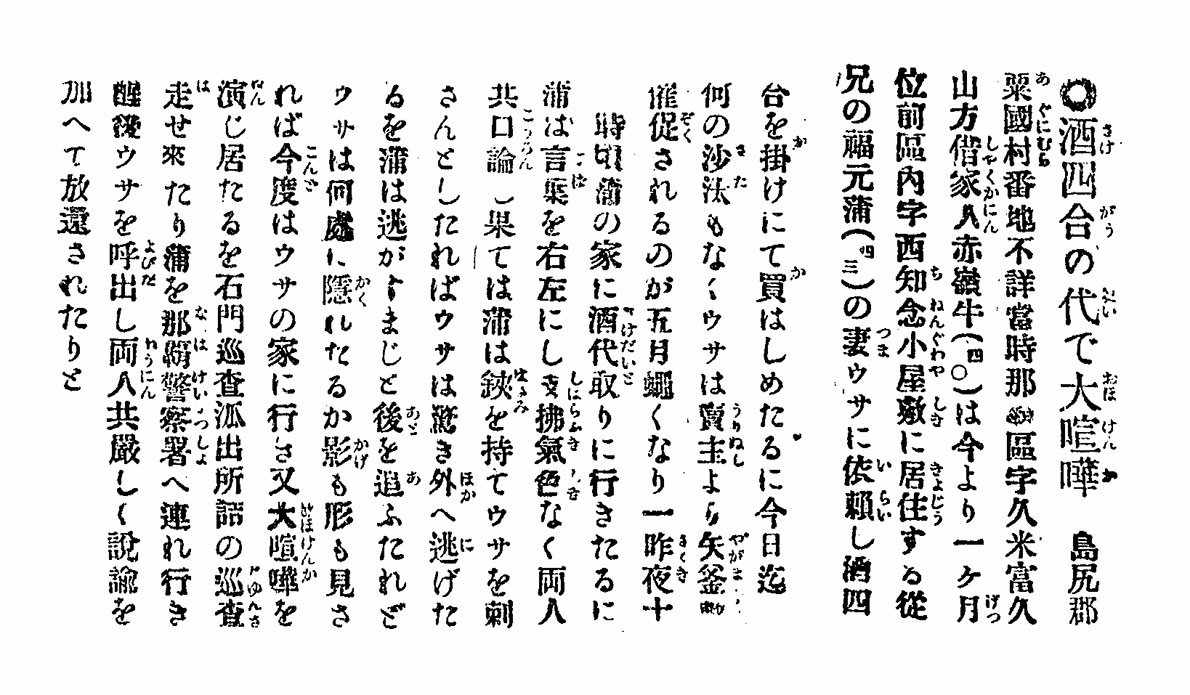 ◎酒四合の代で大喧嘩　島尻郡
粟國村番地不詳當時那覇區字久米富久
山方借家人赤嶺牛(四〇)は今より一ケ月
位前區内字西知念小屋敷に居住する從
兄の福元蒲(四三)の妻ウサに依賴し酒四
合を掛けにて買はしめたるに今日迄
何の沙汰もなくウサは賣主より矢釜敷
催促されるのが五月蠅くなり一昨夜十
時頃蒲の家に酒代取りに行きたるに
蒲は言葉を右左にし支拂氣色なく両人
共口論し果ては蒲は鋏を持てウサを刺
さんとしたればウサは驚き外へ逃げた
るを蒲は逃がすまじと後を追ふたれど
ウサは何處に隱れたるか影も形も見さ
れば今度はウサの家に行き又大喧嘩を
演じ居たるを石門巡査派出所詰の巡査
走せ來たり蒲を那覇警察署へ連れ行き
醒後ウサを呼出し両人共嚴しく說諭を
加へて放還されたりと